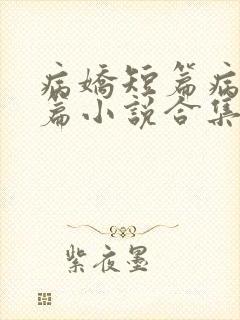 病嬌短篇病
篇小說合集
紫夜墨